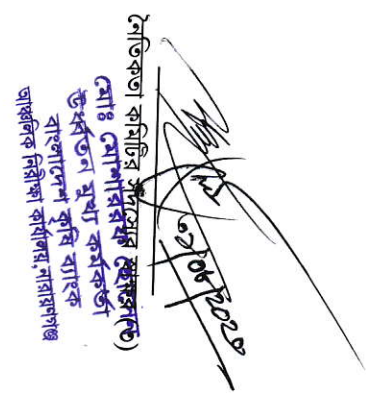 ০২/০৮/২০২০
নৈতিকতা কমিটির সদস্যের স্বাক্ষর
মোঃ মোশাররফ হোসেন
উর্ধ্বতন মুখ্য কর্মকর্তা
বাংলাদেশ কৃষি ব্যাংক
আঞ্চলিক নিরীক্ষা কার্যালয়, নারায়ণগঞ্জ